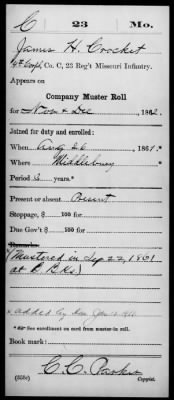 C 23 Mo.
James H. Crocket
Corp'l, Co. C, 23 Reg't Missouri Infantry.
Appears on
Company Muster Roll
for Nov & Dec, 1862.
Joined for duty and enrolled:
When Aug 26, 1861.*
Where Middlebury
Period 3 years.*
Present or absent Present
Stoppage, $ 100 for
Due Gov't $ 100 for
Remarks:
(Mustered in Sep 22, 1861
at B. Bks)
* added by
*See enrollment on card from muster-in roll.
Book mark:
C. C. Parker
(358c) Copyist.